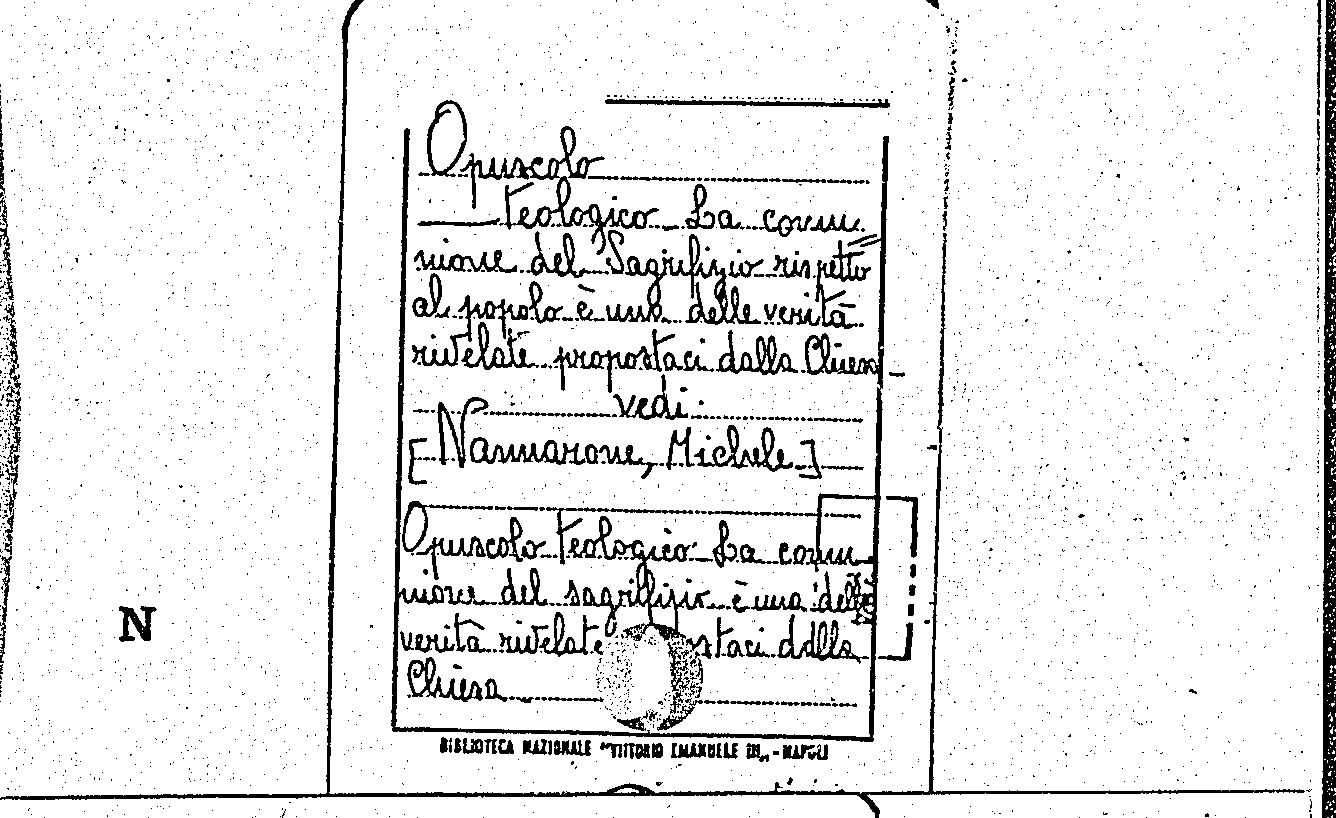 Opuscolo
Teologico La comu
nione del Sagrifizio rispetto
al popolo è una delle verità
rivelate propostaci dalla Chiesa
vedi:
[Nannarone, Michele]
Opuscolo Teologico La comu
nione del sagrifizio è una delle
verità rivelate staci dalla
Chiesa
N
BIBLIOTECA NAZIONALE "VITTORIO EMANUELE III„ - NAPOLI